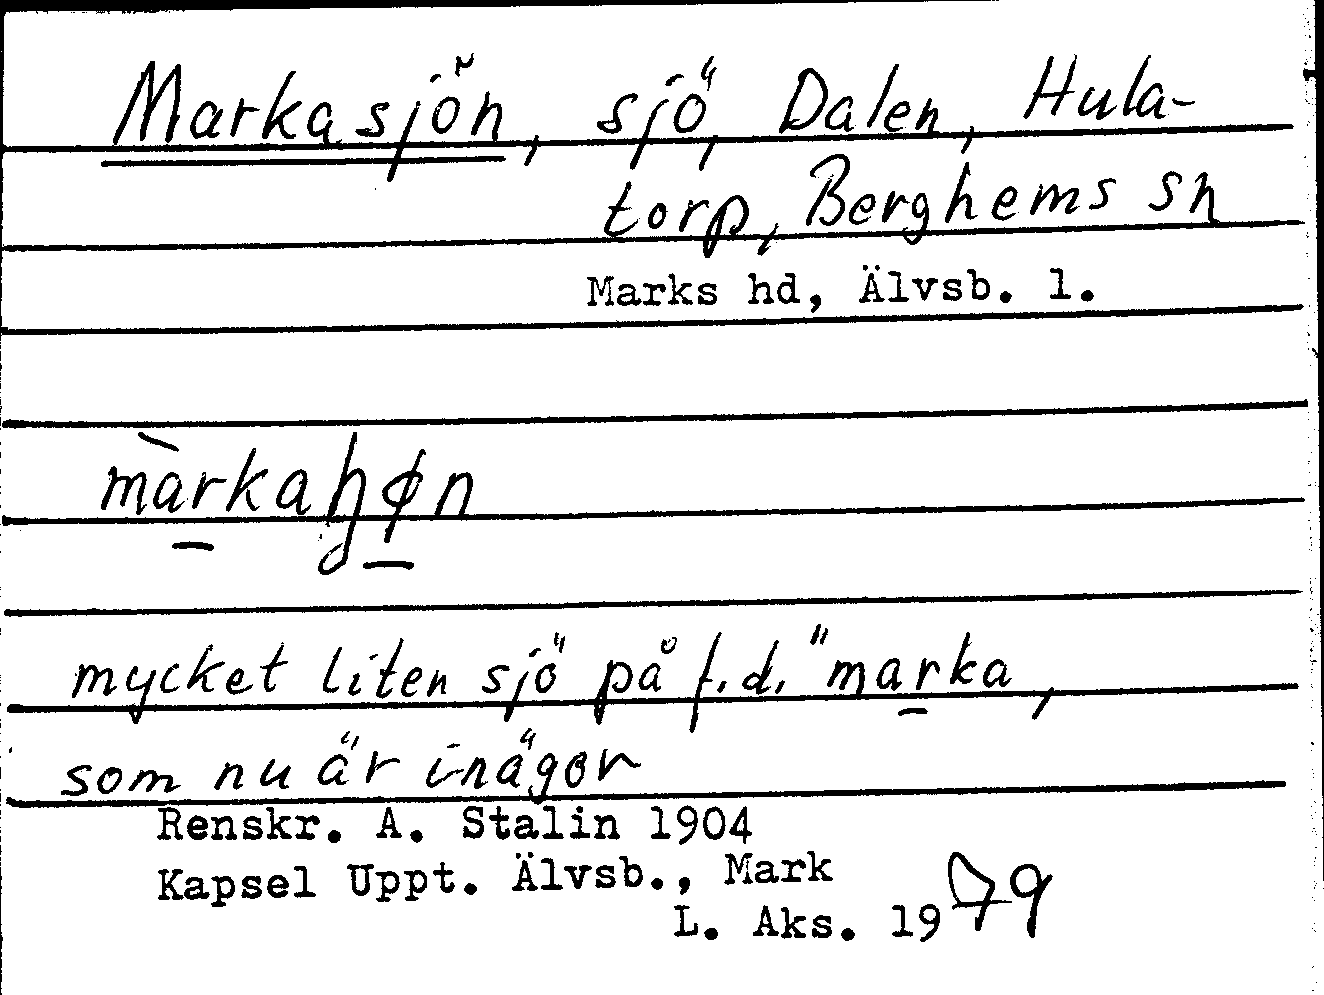 Markasjön, sjö, Dalen, Hula-
torp, Berghems sn
Marks hd, Älvsb. l.
màrkaɧøn
mycket liten sjö på f.d. "marka,
som nu är inägor
Renskr. A. Stalin 1904
Kapsel Uppt. Älvsb., Mark
L. Aks. 1979